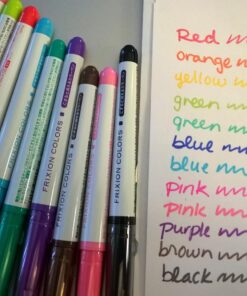 FRIXION COLORS
FRIXION COLORS
FRIXION COLORS
FRIXION COLORS
Red
orange
yellow
green
green
blue
blue
pink
pink
purple
brown
black